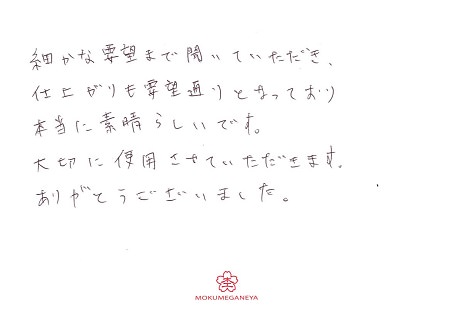 細かな要望まで聞いていただき、
仕上がりも要望通りとなっており
本当に素晴らしいです。
大切に使用させていただきます。
ありがとうございました。
MOKUMEGANEYA